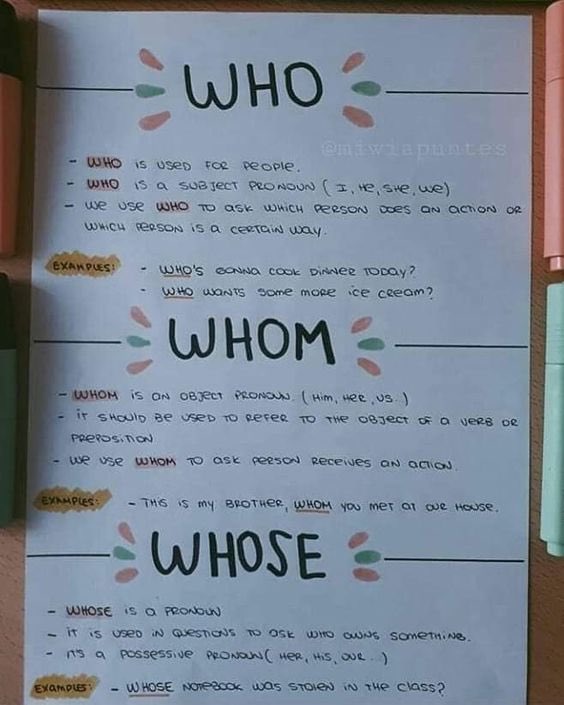 WHO
@miwiapuntes
- WHO is used for people.
- WHO is a subject pronoun (I, He, She, we)
- we use WHO to ask which person does an action or
which person is a certain way.
EXAMPLES: - WHO's gonna cook dinner today?
- WHO wants some more ice cream?
WHOM
- WHOM is an object pronoun. (Him, Her, us..)
- it should be used to refer to the object of a verb or
preposition
- we use WHOM to ask person receives an action.
EXAMPLES: - This is my brother, WHOM you met at our house.
WHOSE
- WHOSE is a pronoun
- it is used in questions to ask who owns something.
- its a possessive pronoun (Her, His, our...)
Examples: - WHOSE notebook was stolen in the class?